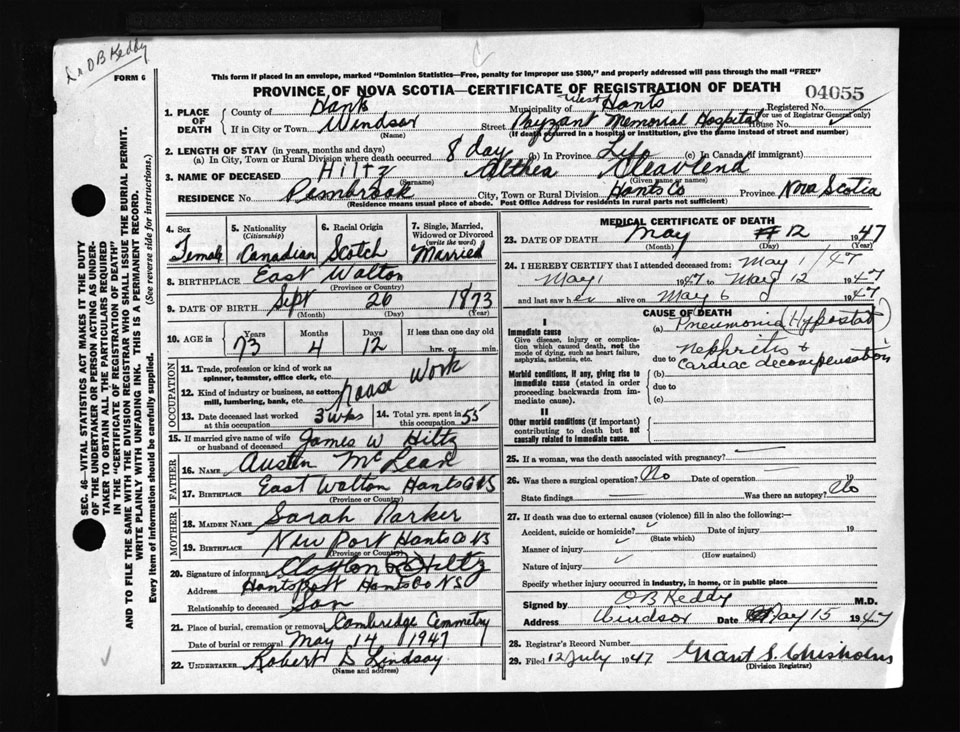 Dr OB Keddy
FORM 6
This form if placed in an envelope, marked "Dominion Statistics—Free, penalty for improper use $300," and properly addressed will pass through the mail "FREE"
PROVINCE OF NOVA SCOTIA—CERTIFICATE OF REGISTRATION OF DEATH
04055
1. PLACE OF DEATH County of Hants Municipality of West Hants Registered No. (For use of Registrar General only)
If in City or Town Windsor (Name) Street Payzant Memorial Hospital House No.
(If death occurred in a hospital or institution, give the name instead of street and number)
2. LENGTH OF STAY (in years, months and days)
(a) In City, Town or Rural Division where death occurred 8 day (b) In Province Life (c) In Canada (if immigrant)
3. NAME OF DECEASED Hiltz (Surname) Althea (Given name or names)
RESIDENCE No Pembrook City, Town or Rural Division Hants Co Province Nova Scotia
(Residence means usual place of abode. Post Office Address for residents in rural parts not sufficient)
4. Sex Female
5. Nationality (Citizenship) Canadian
6. Racial Origin Scotch
7. Single, Married, Widowed or Divorced (write the word) Married
8. BIRTHPLACE East Walton (Province or Country)
9. DATE OF BIRTH Sept (Month) 26 (Day) 1873 (Year)
10. AGE in Years 73 Months 4 Days 12 If less than one day old hrs. or min.
OCCUPATION
11. Trade, profession or kind of work as spinner, teamster, office clerk, etc.
12. Kind of industry or business, as cotton mill, lumbering, bank, etc. House Work
13. Date deceased last worked at this occupation 3 wks
14. Total yrs. spent in this occupation 55
15. If married give name of wife or husband of deceased James W Hiltz
FATHER
16. NAME Austin McLean
17. BIRTHPLACE East Walton Hants Co NS (Province or Country)
MOTHER
18. MAIDEN NAME Sarah Parker
19. BIRTHPLACE New Port Hants Co NS (Province or Country)
20. Signature of informant Clayton Hiltz
Address Hantsport Hants Co NS
Relationship to deceased Son
21. Place of burial, cremation or removal Cambridge Cemmetry
Date of burial or removal May 14 1947
22. UNDERTAKER Robert D Lindsay (Name and address)
MEDICAL CERTIFICATE OF DEATH
23. DATE OF DEATH May (Month) 12 (Day) 1947 (Year)
24. I HEREBY CERTIFY that I attended deceased from: May 1/47
May 1 1947 to May 12 1947
and last saw her alive on May 6 1947
CAUSE OF DEATH
I
Immediate cause
Give disease, injury or complication which caused death, not the mode of dying, such as heart failure, asphyxia, asthenia, etc.
(a) Pneumonia (Hypostat)
due to Nephritis & Cardiac decompensation
Morbid conditions, if any, giving rise to immediate cause (stated in order proceeding backwards from immediate cause).
(b)
due to
(c)
II
Other morbid conditions (if important) contributing to death but not causally related to immediate cause.
25. If a woman, was the death associated with pregnancy?
26. Was there a surgical operation? No Date of operation 19
State findings Was there an autopsy? No
27. If death was due to external causes (violence) fill in also the following:—
Accident, suicide or homicide? (State which) Date of injury 19
Manner of injury (How sustained)
Nature of injury
Specify whether injury occurred in industry, in home, or in public place
Signed by OB Keddy M.D.
Address Windsor Date May 15 1947
28. Registrar's Record Number
29. Filed 12 July 1947 Grant S. Chisholm (Division Registrar)
SEC. 46—VITAL STATISTICS ACT MAKES IT THE DUTY
OF THE UNDERTAKER OR PERSON ACTING AS UNDER-
TAKER TO OBTAIN ALL THE PARTICULARS REQUIRED
IN THE "CERTIFICATE OF REGISTRATION OF DEATH"
AND TO FILE THE SAME WITH THE DIVISION REGISTRAR WHO SHALL ISSUE THE BURIAL PERMIT.
WRITE PLAINLY WITH UNFADING INK. THIS IS A PERMANENT RECORD.
Every item of information should be carefully supplied. (See reverse side for instructions.)